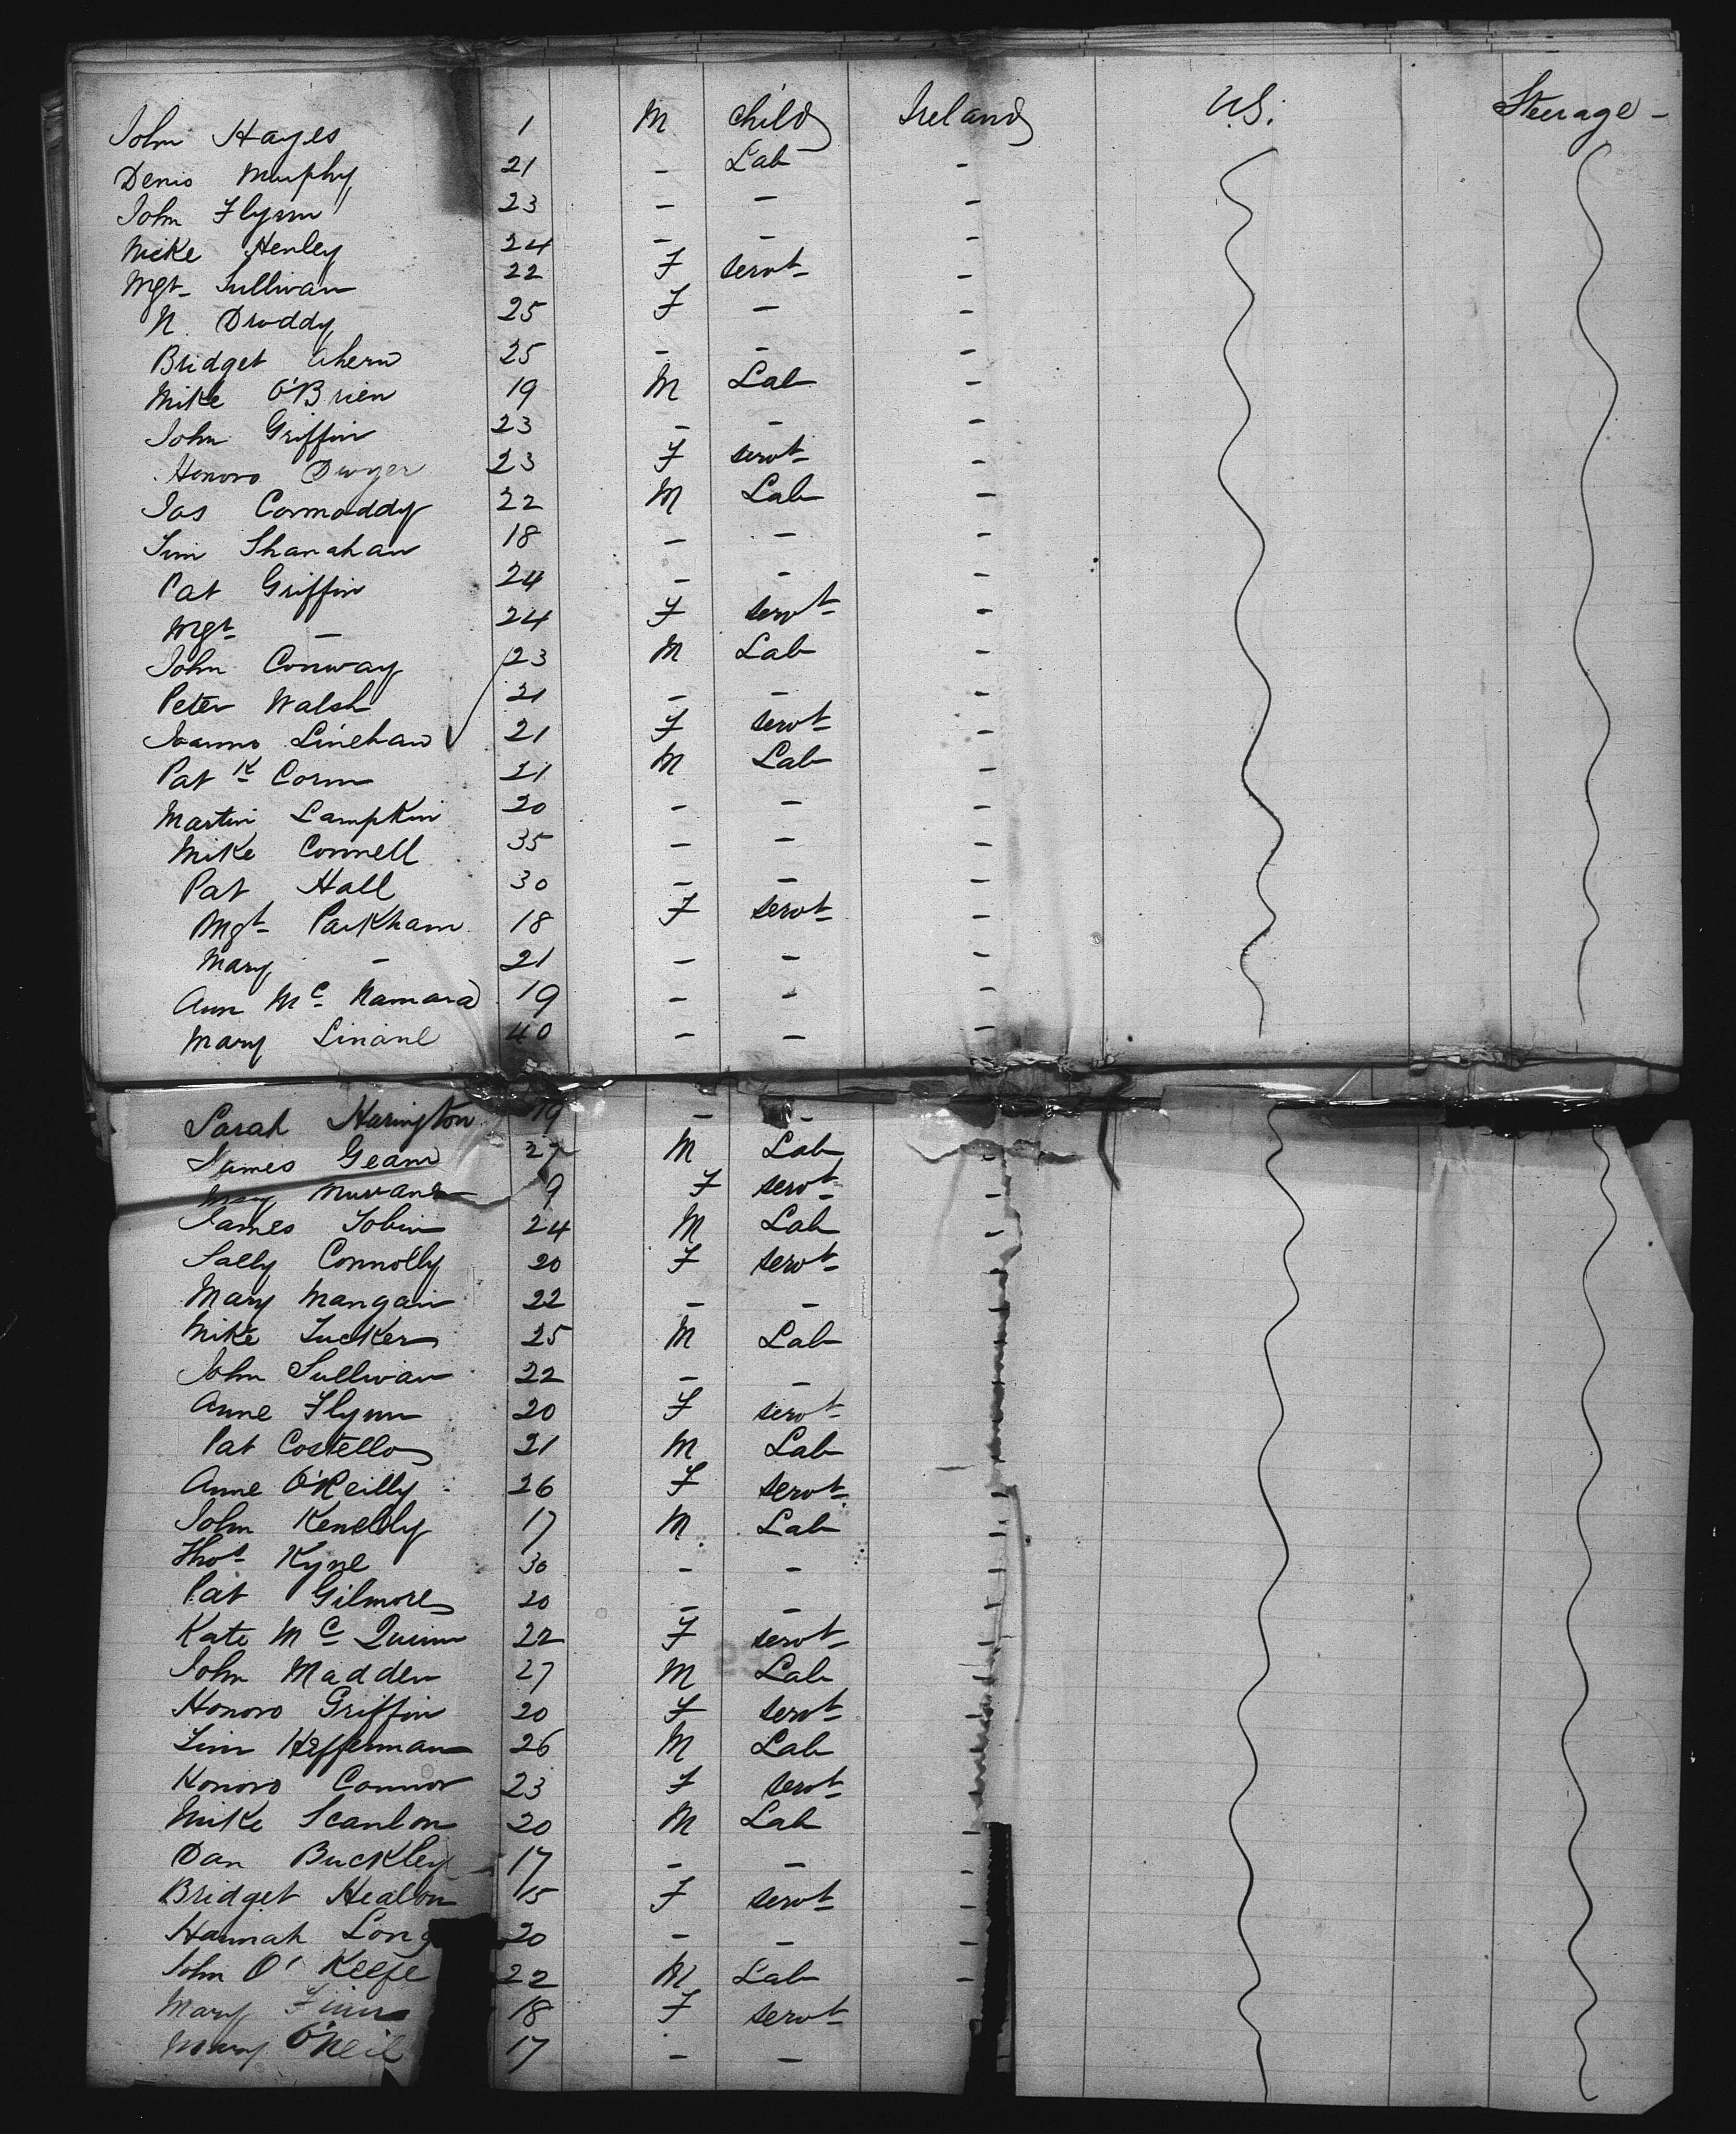 John Hayes 1 M Child Ireland U.S. Steerage -
Denis Murphy 21 - Lab -
John Flynn 23 - - -
Mike Henley 24 - - -
Mgt Sullivan 22 F servt -
N. Druddy 25 F - -
Bridget Ahern 25 - - -
Mike O'Brien 19 M Lab -
John Griffin 23 - - -
Honoro Dwyer 23 F servt -
Jas Cormoddy 22 M Lab -
Tim Shanahan 18 - - -
Pat Griffin 24 - - -
Mgt - 24 F servt -
John Conway 23 M Lab -
Peter Walsh 21 - - -
Linehan 21 F servt -
Patk Corm 21 M Lab -
Martin Lampkin 20 - - -
Mike Connell 35 - - -
Pat Hall 30 - - -
Mgt Parkham 18 F servt -
Mary - 21 - - -
Ann Mc Namara 19 - - -
Mary Linane 40 - - -
Sarah Harington 19 - -
James Gean 27 M Lab -
May 9 F servt -
James Tobin 24 M Lab -
Sally Connolly 20 F servt -
Mary Mangain 22 - - -
Mike Tucker 25 M Lab -
John Sullivan 22 - - -
Anne Flynn 20 F servt -
Pat Costello 21 M Lab -
Anne O'Reilly 26 F servt -
John Kenelly 17 M Lab -
Thos Kyne 30 - - -
Pat Gilmore 20 - - -
Kate Mc Quinn 22 F servt -
John Madden 27 M Lab -
Honoro Griffin 20 F servt -
Tim Heffernan 26 M Lab -
Honoro Connor 23 F servt -
Mike Scanlon 20 M Lab -
Dan Buckley 17 - - -
Bridget Healon 15 F servt -
Hannah Long 20 - - -
John O' Keefe 22 M Lab -
Mary Finn 18 F servt
Mary O'Neil 17 - -